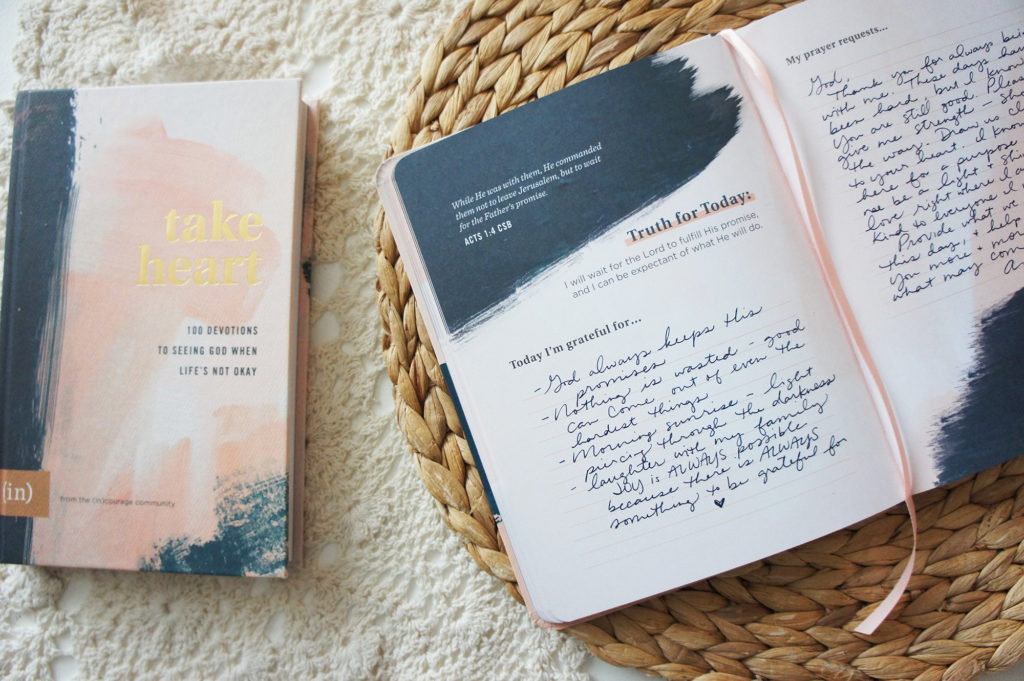 take
heart
100 DEVOTIONS
TO SEEING GOD WHEN
LIFE'S NOT OKAY
(in)
from the (in)courage community
While He was with them, He commanded
them not to leave Jerusalem, but to wait
for the Father's promise.
ACTS 1:4 CSB
Truth for Today:
I will wait for the Lord to fulfill His promise,
and I can be expectant of what He will do.
Today I'm grateful for...
- God always keeps His
promises
- Nothing is wasted - good
can come out of even the
hardest things.
- Morning sunrise - light
piercing through the darkness
- laughter with my family
JOY is ALWAYS possible
because there is ALWAYS
something to be grateful for
♥
My prayer requests...
God,
Thank you for always bein
with me. These days hav
been hard, but I know
You are still good. Pleas
give me strength - sh
the way. Draw us cl
to your heart. I know
here for a purpose
me be a light & shi
love right where I a
kind to everyone
Provide what we
this day, & help
you more & mor
what may com